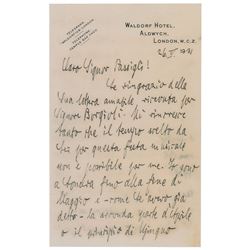 WALDORF HOTEL,
ALDWYCH,
LONDON, W.C.2.
Caro Signor Bassigli!
te ringrazio della
Sua lettera amabile, ricevuta per
Signor Borgioli. Mi rincresce
tanto che il tempo scelto da
per questa festa musicale
non è possibile per me. Io sono
a Londra fino alla fine di
Maggio e - come avevo già
detto - la seconda parte d'Aprile
o il principio di Giugno